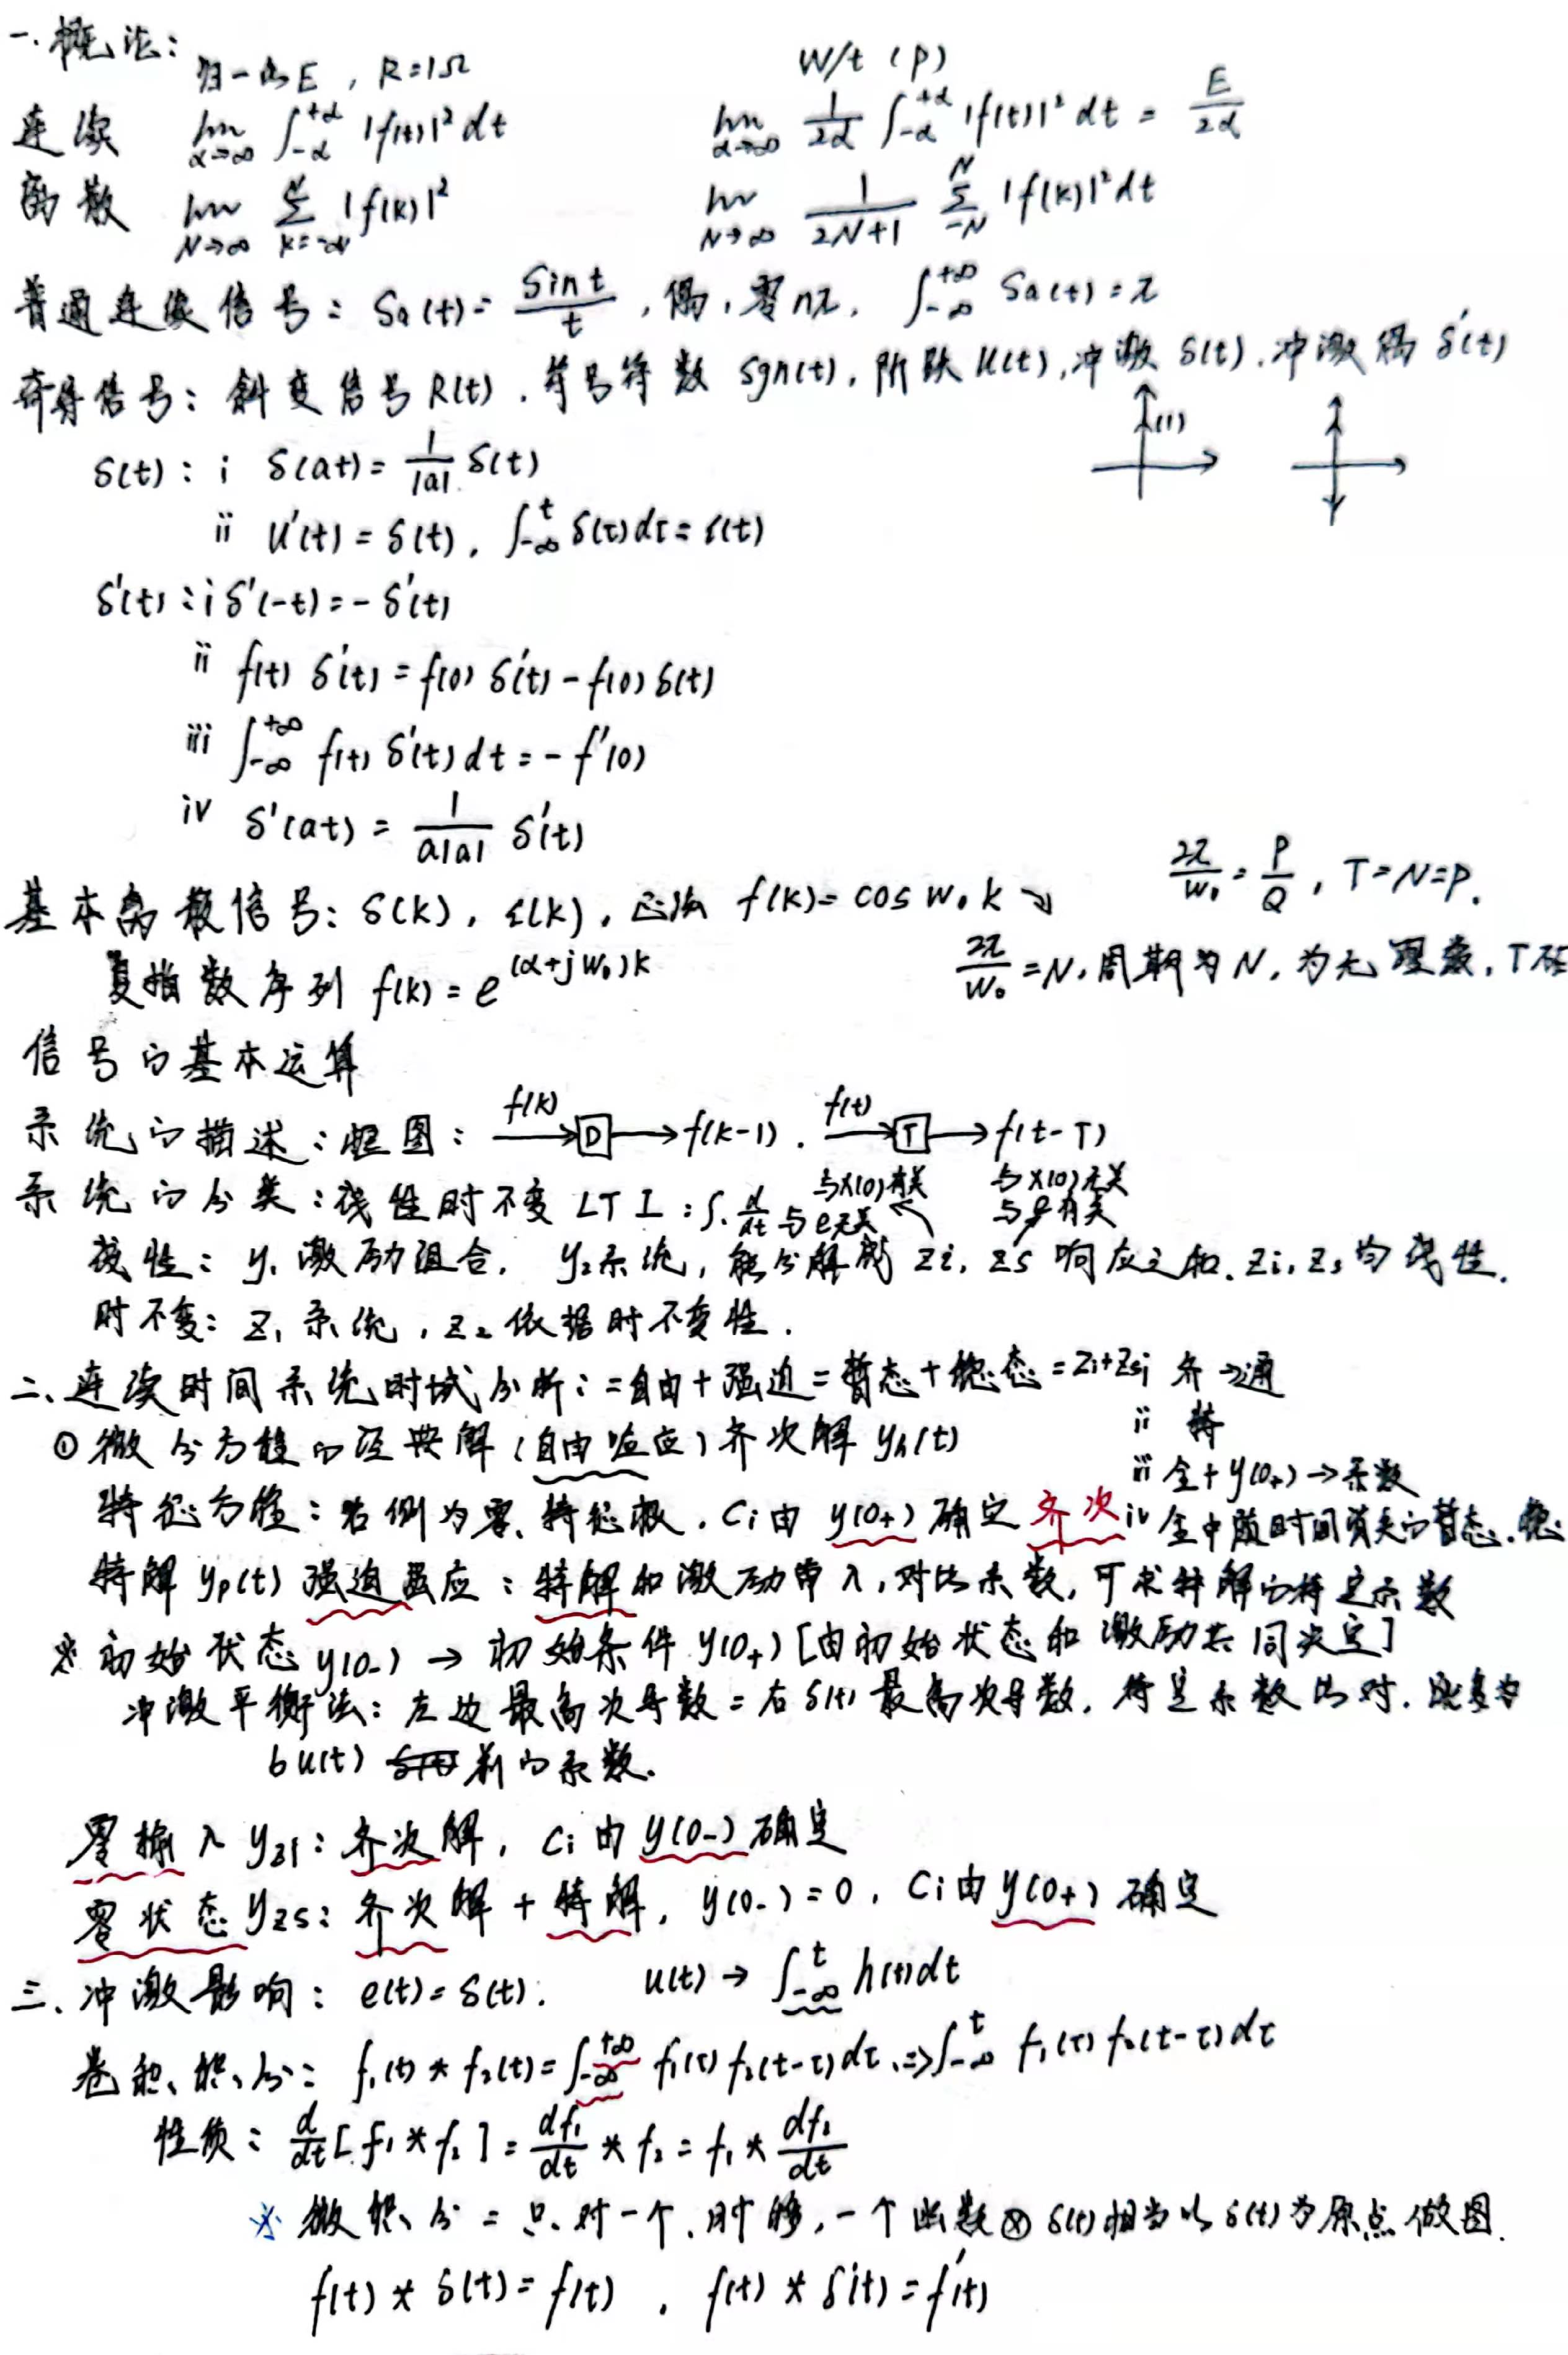 一. 概论:
归一的E , R=1Ω W/t (P)
连续 lim α→∞ ∫_{-α}^{+α} |f(t)|² dt lim α→∞ 1/2α ∫_{-α}^{+α} |f(t)|² dt = E/2α
离散 lim N→∞ Σ_{k=-N}^{N} |f(k)|² lim N→∞ 1/(2N+1) Σ_{-N}^{N} |f(k)|² dt
普通连续信号: Sa(t)= sint/t , 偶, 零nπ, ∫_{-∞}^{+∞} Sa(t)=π
奇异信号: 斜变信号 R(t) . 符号符数 sgn(t), 阶跃 u(t), 冲激 δ(t). 冲激偶 δ'(t)
(1)
δ(t): i δ(at)= 1/|a| δ(t)
ii u'(t)=δ(t), ∫_{-∞}^{t} δ(τ)dτ=ε(t)
δ'(t): i δ'(-t)=-δ'(t)
ii f(t) δ'(t)=f(0) δ'(t)-f(0) δ(t)
iii ∫_{-∞}^{+∞} f(t) δ'(t) dt=-f'(0)
iv δ'(at)= 1/a|a| δ'(t)
2π/w₀ = P/Q , T=N=P.
基本离散信号: δ(k), ε(k), 正弦 f(k)=cos w₀k →
2π/w₀=N, 周期为N, 为无理数, T
复指数序列 f(k)=e^{(α+jw₀)k}
信号的基本运算
系统的描述: 框图: f(k) → D → f(k-1) . f(t) → T → f(t-T)
与x(0)有关 与x(0)无关
系统的分类: 线性时不变 LTI: ∫. d/dt 与e无关 与e有关
线性: y₁ 激励组合, y₂系统, 能分解成 Zi, Zs 响应之和. Zi, Zs 均线性.
时不变: Z₁ 系统, Z₂ 依据时不变性.
二、连续时间系统时域分析: =自由+强迫=暂态+稳态=Zi+Zs i 齐→通
ii 特
① 微分方程的经典解 (自由响应) 齐次解 yh(t)
iii 全+y(0+)→系数
特征方程: 右侧为零、特征根. Ci由 y(0+) 确定 齐次 iv 全中随时间消失的暂态. 稳
特解 yp(t) 强迫响应: 特解和激励带入, 对比系数, 可求特解的待定系数
※ 初始状态 y(0-) → 初始条件 y(0+) [由初始状态和激励共同决定]
冲激平衡法: 左边最高次导数=右δ(t)最高次导数. 待定系数比对.
bu(t) 前的系数.
零输入 yzi: 齐次解, Ci 由 y(0-) 确定
零状态 yzs: 齐次解 + 特解, y(0-)=0, Ci由 y(0+) 确定
三、冲激影响: e(t)=δ(t). u(t) → ∫_{-∞}^{t} h(t)dt
卷积、积、分: f₁(t) * f₂(t)=∫_{-∞}^{+∞} f₁(τ) f₂(t-τ) dτ. ⇒ ∫_{-∞}^{t} f₁(τ) f₂(t-τ) dτ
性质: d/dt [f₁ * f₂] = df₁/dt * f₂ = f₁ * df₂/dt
※ 微积、分 = 只对一个. 时移, 一个函数 ⊗ δ(t)相当以 δ(t)为原点做图.
f(t) * δ(t)=f(t) , f(t) * δ'(t)=f'(t)